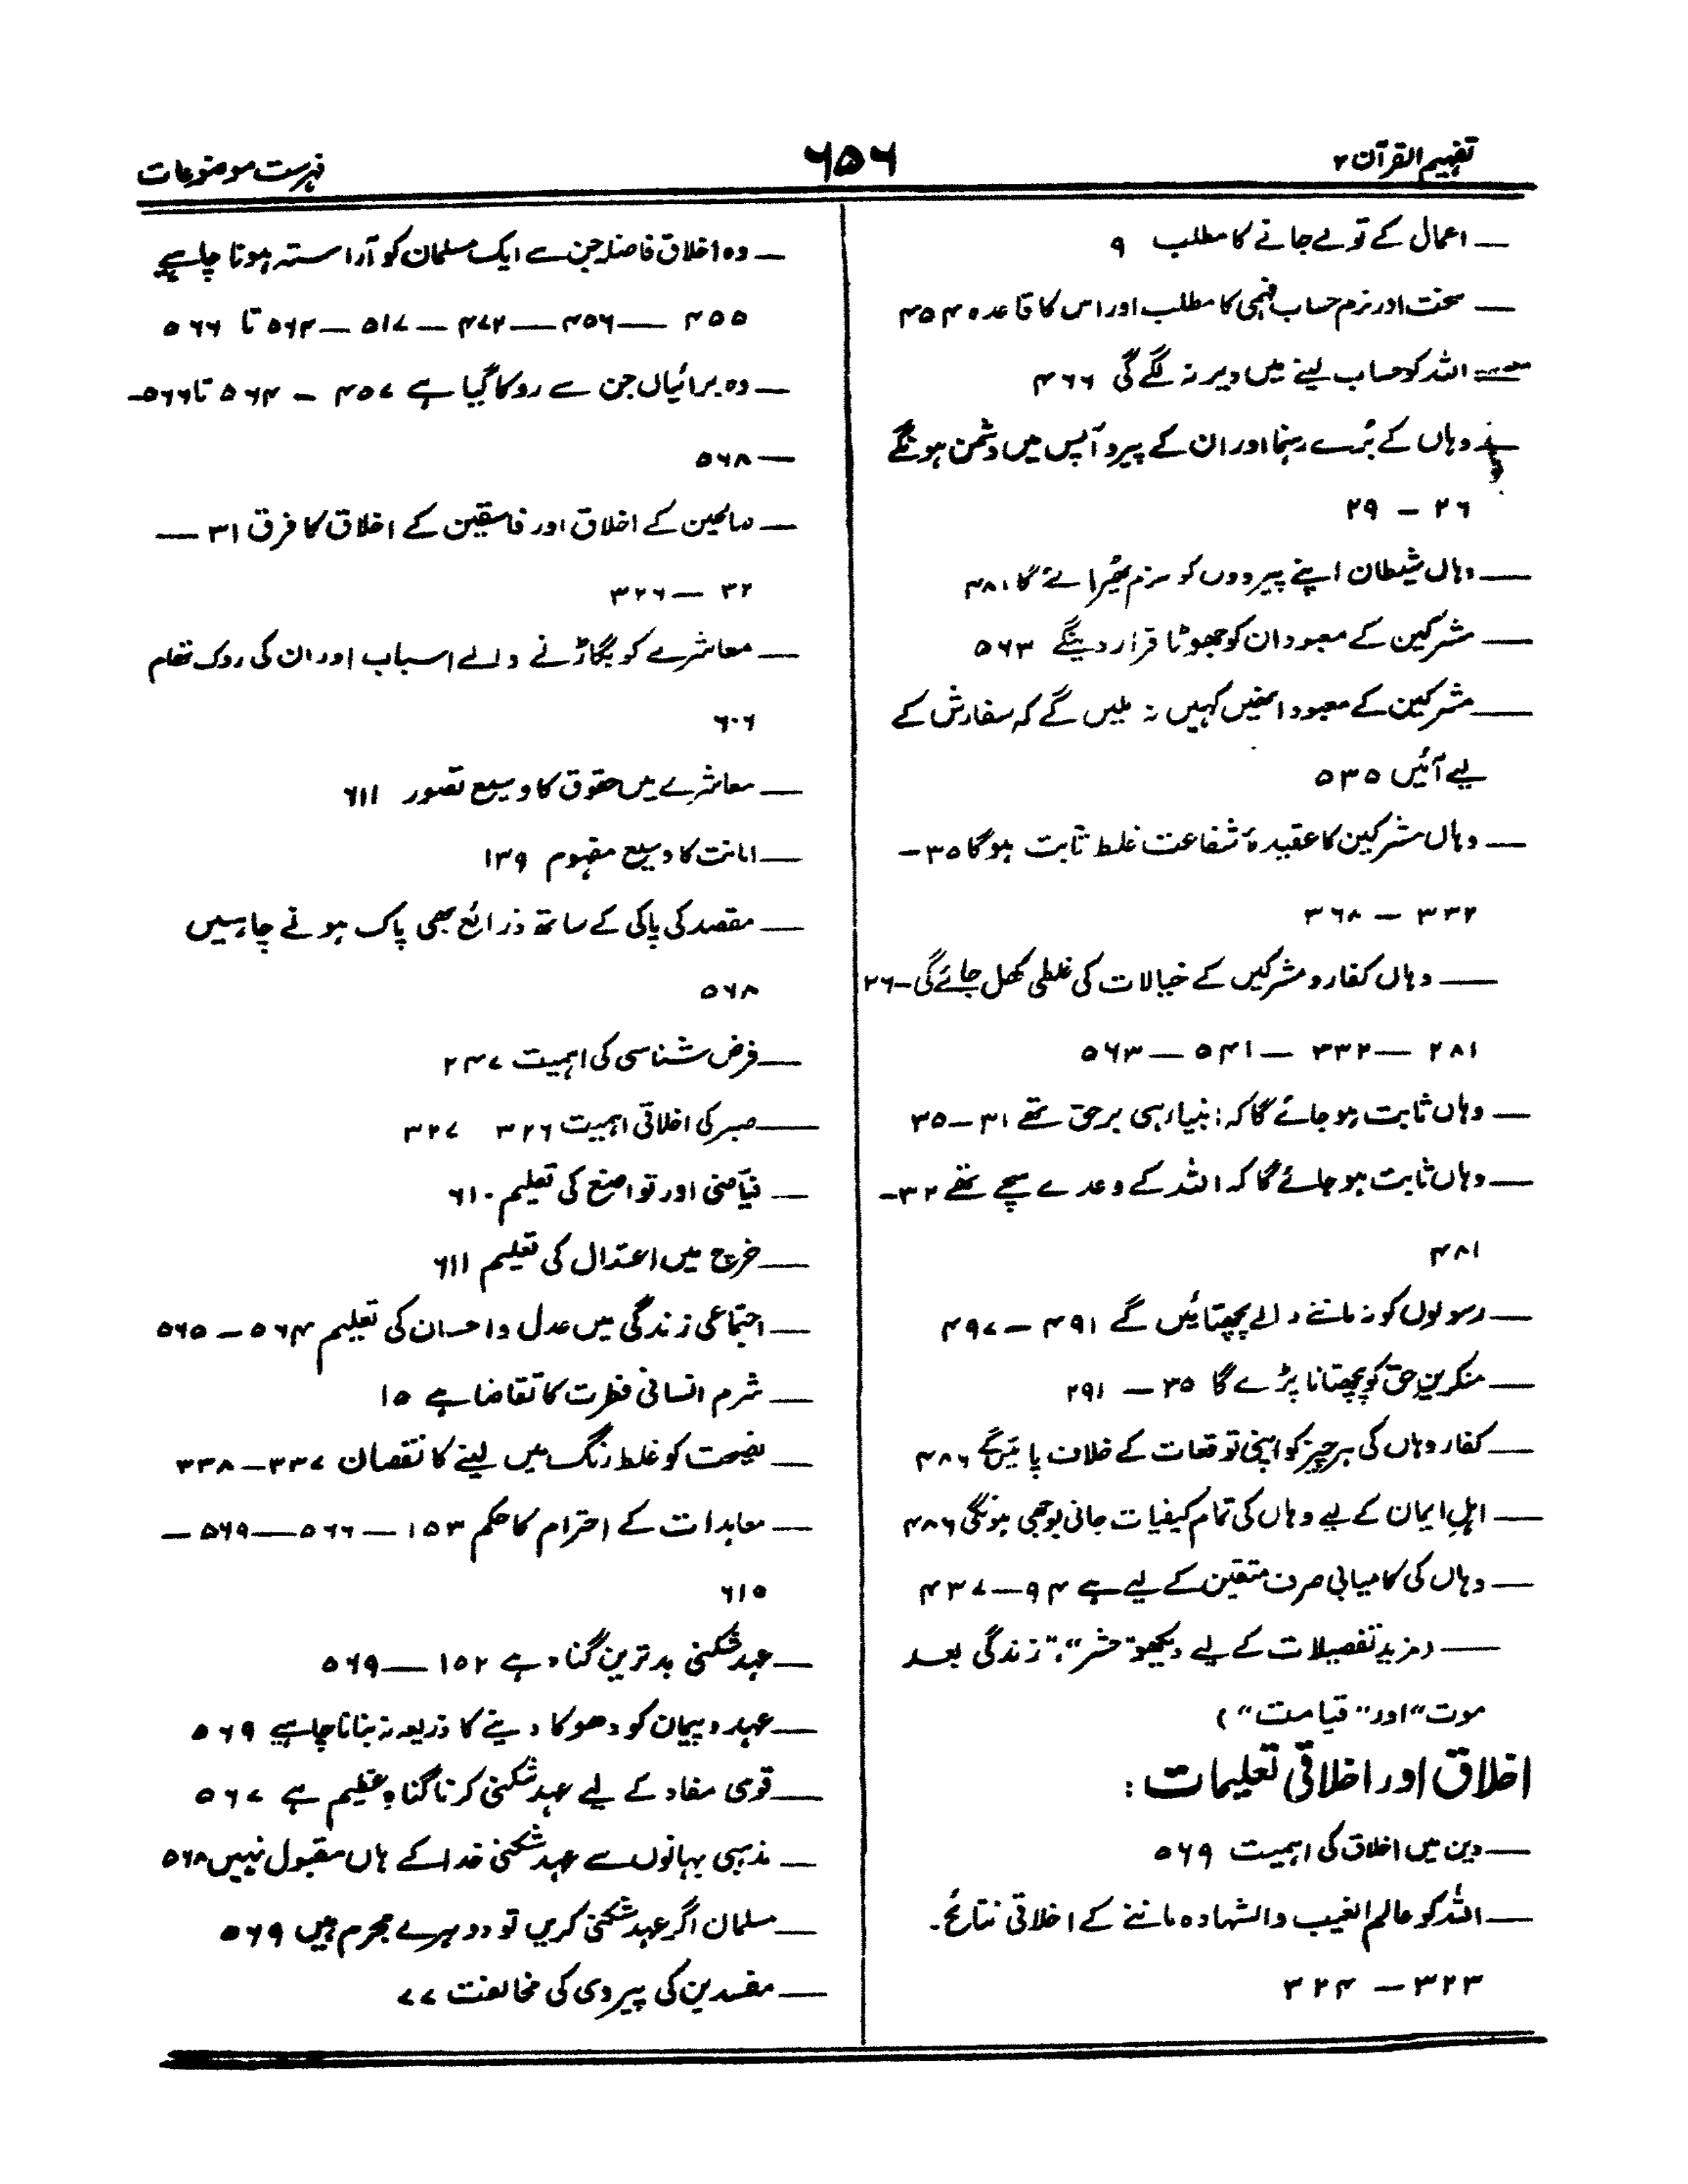 تفہیم القرآن ۲
۶۵۶
فہرست موضوعات
— اعمال کے تولے جانے کا مطلب ۹
— سخت اور نرم حساب فہمی کا مطلب اور اس کا قاعدہ ۴۵۴
— اللہ کو حساب لینے میں دیر نہ لگے گی ۴۶۶
— وہاں کے بُرے رہنما اور ان کے پیرو آپس میں دشمن ہونگے
۲۶ – ۲۹
— وہاں شیطان اپنے پیرووں کو ملزم ٹھیرائے گا ۴۸۱
— مشرکین کے معبود ان کو جھوٹا قرار دینگے ۵۶۳
— مشرکین کے معبود انھیں کہیں نہ ملیں گے کہ سفارش کے
لیے آئیں ۵۳۵
— وہاں مشرکین کا عقیدۂ شفاعت غلط ثابت ہوگا ۳۵ –
۳۳۲ – ۳۶۸
— وہاں کفار و مشرکین کے خیالات کی غلطی کھل جائے گی – ۲۶
۲۸۱ — ۳۳۲ — ۵۴۱ — ۵۶۳
— وہاں ثابت ہو جائے گا کہ انبیاء ہی برحق تھے ۳۱ – ۳۵
— وہاں ثابت ہو جائے گا کہ اللہ کے وعدے سچے تھے ۳۲ –
۴۸۱
— رسولوں کو نہ ماننے والے پچھتائیں گے ۴۹۱ – ۴۹۷
— منکرینِ حق کو پچھتانا پڑے گا ۳۵ – ۲۹۱
— کفار وہاں کی ہر چیز کو اپنی توقعات کے خلاف پائیں گے ۴۸۶
— اہلِ ایمان کے لیے وہاں کی تمام کیفیات جانی بوجھی ہونگی ۴۸۶
— وہاں کی کامیابی صرف متقین کے لیے ہے ۹۴ – ۴۳۷
— (مزید تفصیلات کے لیے دیکھو "حشر"، "زندگی بعد
موت" اور "قیامت")
اخلاق اور اخلاقی تعلیمات :
— دین میں اخلاق کی اہمیت ۵۶۹
— اللہ کو عالم الغیب والشہادہ ماننے کے اخلاقی نتائج –
۳۲۳ – ۳۲۴
— وہ اخلاق فاضلہ جن سے ایک مسلمان کو آراستہ ہونا چاہیے
۴۵۵ — ۴۵۶ — ۴۷۲ — ۵۱۷ — ۵۶۴ تا ۵۶۶
— وہ برائیاں جن سے روکا گیا ہے ۴۵۷ – ۵۶۴ تا ۵۶۶ –
— ۵۶۸
— صالحین کے اخلاق اور فاسقین کے اخلاق کا فرق ۳۱ —
۳۲ — ۳۲۶
— معاشرے کو بگاڑنے والے اسباب اور ان کی روک تھام
۶۰۶
— معاشرے میں حقوق کا وسیع تصور ۶۱۱
— امانت کا وسیع مفہوم ۱۳۹
— مقصد کی پاکی کے ساتھ ذرائع بھی پاک ہونے چاہییں
۵۶۸
— فرض شناسی کی اہمیت ۲۴۷
— صبر کی اخلاقی اہمیت ۳۲۶ ۳۲۷
— فیاضی اور تواضع کی تعلیم ۶۱۰
— خرچ میں اعتدال کی تعلیم ۶۱۱
— اجتماعی زندگی میں عدل و احسان کی تعلیم ۵۶۴ – ۵۶۵
— شرم انسانی فطرت کا تقاضا ہے ۱۵
— نصیحت کو غلط رنگ میں لینے کا نقصان ۳۳۷ – ۳۳۸
— معاہدات کے احترام کا حکم ۱۵۳ — ۵۶۶ — ۵۶۹ —
۶۱۵
— عہد شکنی بدترین گناہ ہے ۱۵۲ — ۵۶۹
— عہد و پیمان کو دھوکا دینے کا ذریعہ نہ بنانا چاہیے ۵۶۹
— قومی مفاد کے لیے عہد شکنی کرنا گناہِ عظیم ہے ۵۶۷
— مذہبی بہانوں سے عہد شکنی خدا کے ہاں مقبول نہیں ۵۶۸
— مسلمان اگر عہد شکنی کریں تو دوہرے مجرم ہیں ۵۶۹
— مفسدین کی پیروی کی مخالفت ۷۷